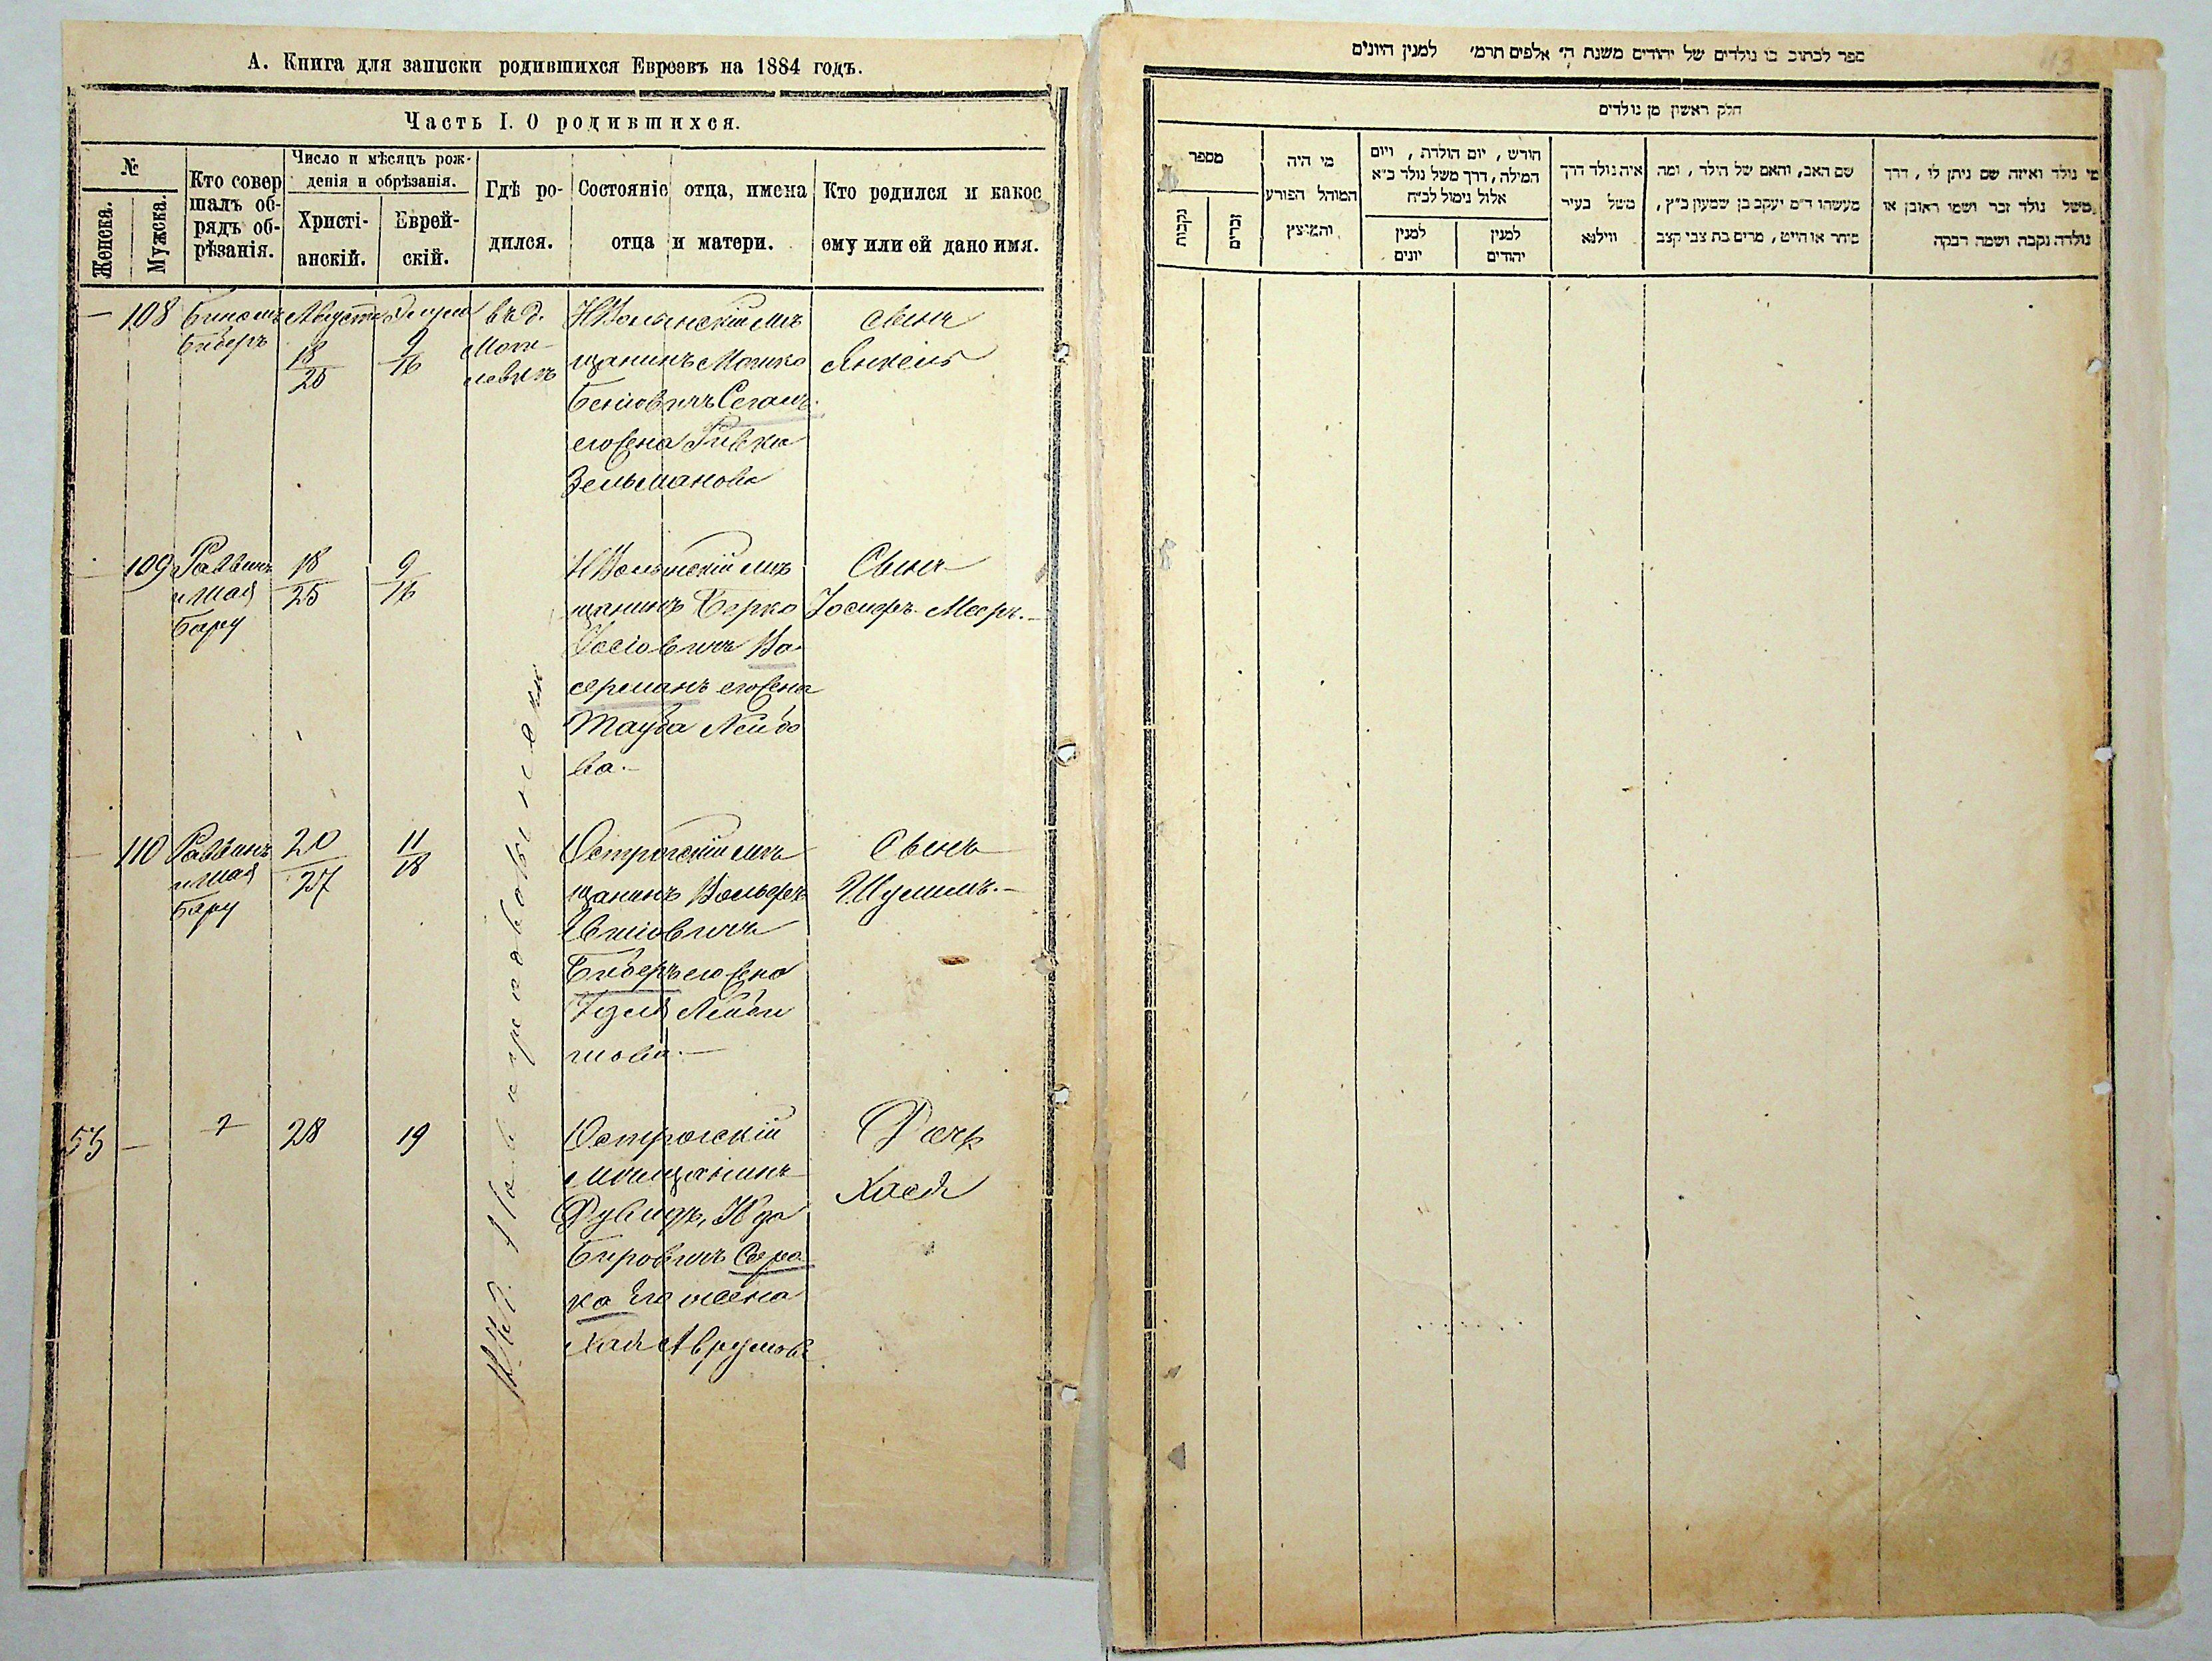 А. Книга для записки родившихся Евреевъ на 1884 годъ.
Часть I. О родившихся.
№
Женска.
Мужска.
Кто совер
шалъ об-
рядъ об-
рѣзанія.
Число и мѣсяцъ рож-
денія и обрѣзанія.
Христі-
анскій.
Еврей-
скій.
Гдѣ ро-
дился.
Состояніе отца, имена
отца и матери.
Кто родился и какое
ему или ей дано имя.
— 108
Биберъ
Августа
18
25
9
16
въ д.
НВолынскій мѣ
щанинъ Мошко
Беніовичъ Сегалъ
его жена Ривка
Зельманова
сынъ
Янкель
109
Раввинъ
и Шая
Бару
18
25
9
16
НВолынскій мѣ
щанинъ Берко
Іосіовичъ Ва
серманъ его жена
Тауба Лейбо
ва.—
Сынъ
Іосифъ Мееръ.—
110
Раввинъ
и Шая
Бару
20
27
11
18
Острогскій мѣ
щанинъ Вольфъ
Биберъ его жена
шова.—
Сынъ
Шулимъ.—
53 —
28
19
Острогскій
мѣщанинъ
Беровичъ Соро
ка Его жена
Хая Аврумова
Дочь
Хася
ספר לכתוב בו נולדים של יהודים משנת ה׳ אלפים תרמ׳ למנין היונים
חלק ראשון מן נולדים
מספר
נקבות
זכרים
מי היה
המוהל הפורע
והמוצץ
חודש , יום הולדת , ויום
המילה, דרך משל נולד כ״א
אלול נימול לכ״ח
למנין
יונים
למנין
יהודים
איה נולד דרך
משל בעיר
ווילנא
שם האב, והאם של הילד , ומה
מעשהו ד״מ יעקב בן שמעון כ״ץ,
סוחר או חייט, מרים בת צבי קצב
מי נולד ואיזה שם ניתן לו , דרך
משל נולד זכר ושמו ראובן או
נולדה נקבה ושמה רבקה